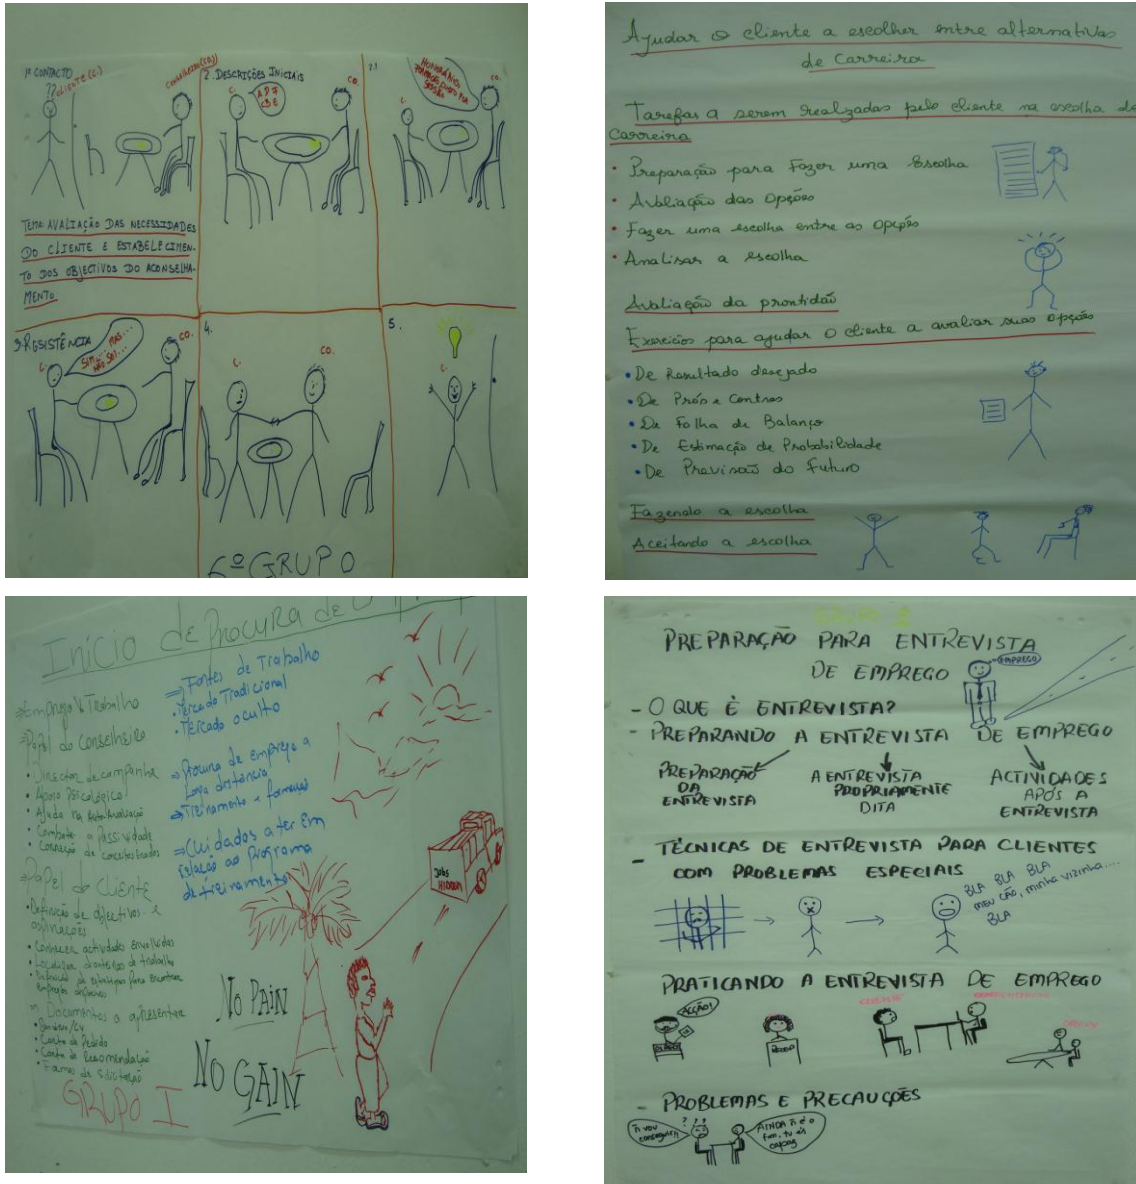 1º CONTACTO
??
CLIENTE (C.)
CONSELHEIRO (CO.)
TEMA: AVALIAÇÃO DAS NECESSIDADES
DO CLIENTE E ESTABELECIMEN-
TO DOS OBJECTIVOS DO ACONSELHA-
MENTO
2. DESCRIÇÕES INICIAIS
C.
CO.
2.1
C.
CO.
3. RESISTÊNCIA
SIM... MAS...
NÃO SEI...
C.
CO.
4.
C.
CO.
5.
C.
6º GRUPO
Ajudar o cliente a escolher entre alternativas
de Carreira
Tarefas a serem realizadas pelo cliente na escolha de
Carreira
• Preparação para Fazer uma Escolha
• Avaliação das Opções
• Fazer uma escolha entre as opções
• Analisar a escolha
Avaliação da prontidão
Exercícios para ajudar o cliente a avaliar suas opções
• De Resultado desejado
• De Prós e Contras
• De Folha de Balanço
• De Estimação de Probabilidade
• De Previsão do Futuro
Fazendo a escolha
Aceitando a escolha
Início de Procura de
⇒ Emprego Vs Trabalho
⇒ Papel do Conselheiro
• Director de campanha
• Apoio Psicológico
• Ajuda na AutoAvaliação
• Combate a Passividade
• Correcção de conceitos errados
⇒ Papel do Cliente
• Definição de objectivos e
aspirações
• Conhecer actividades envolvidas
• Documentos a apresentar
• Carta de Pedido
• Carta de Recomendação
GRUPO I
⇒ Fontes de Trabalho
• Mercado Tradicional
• Mercado oculto
⇒ Procura de emprego a
Longa distância
⇒ Treinamento e formação
⇒ Cuidados a ter Em
relação ao Programa
de treinamento
Jobs
HIDDEN
NO PAIN
NO GAIN
PREPARAÇÃO PARA ENTREVISTA
DE EMPREGO
EMPREGO
- O QUE É ENTREVISTA?
- PREPARANDO A ENTREVISTA DE EMPREGO
PREPARAÇÃO
DA
ENTREVISTA
A ENTREVISTA
PROPRIAMENTE
DITA
ACTIVIDADES
APÓS A
ENTREVISTA
- TÉCNICAS DE ENTREVISTA PARA CLIENTES
COM PROBLEMAS ESPECIAIS
BLA BLA BLA
MEU CÃO, MINHA VIZINHA....
BLA
PRATICANDO A ENTREVISTA DE EMPREGO
ACÇÃO!
- PROBLEMAS E PRECAUÇÕES
? ? ?
Ñ VOU
CONSEGUIR!!
AINDA Ñ É O
FIM, TU ÉS
CAPAZ